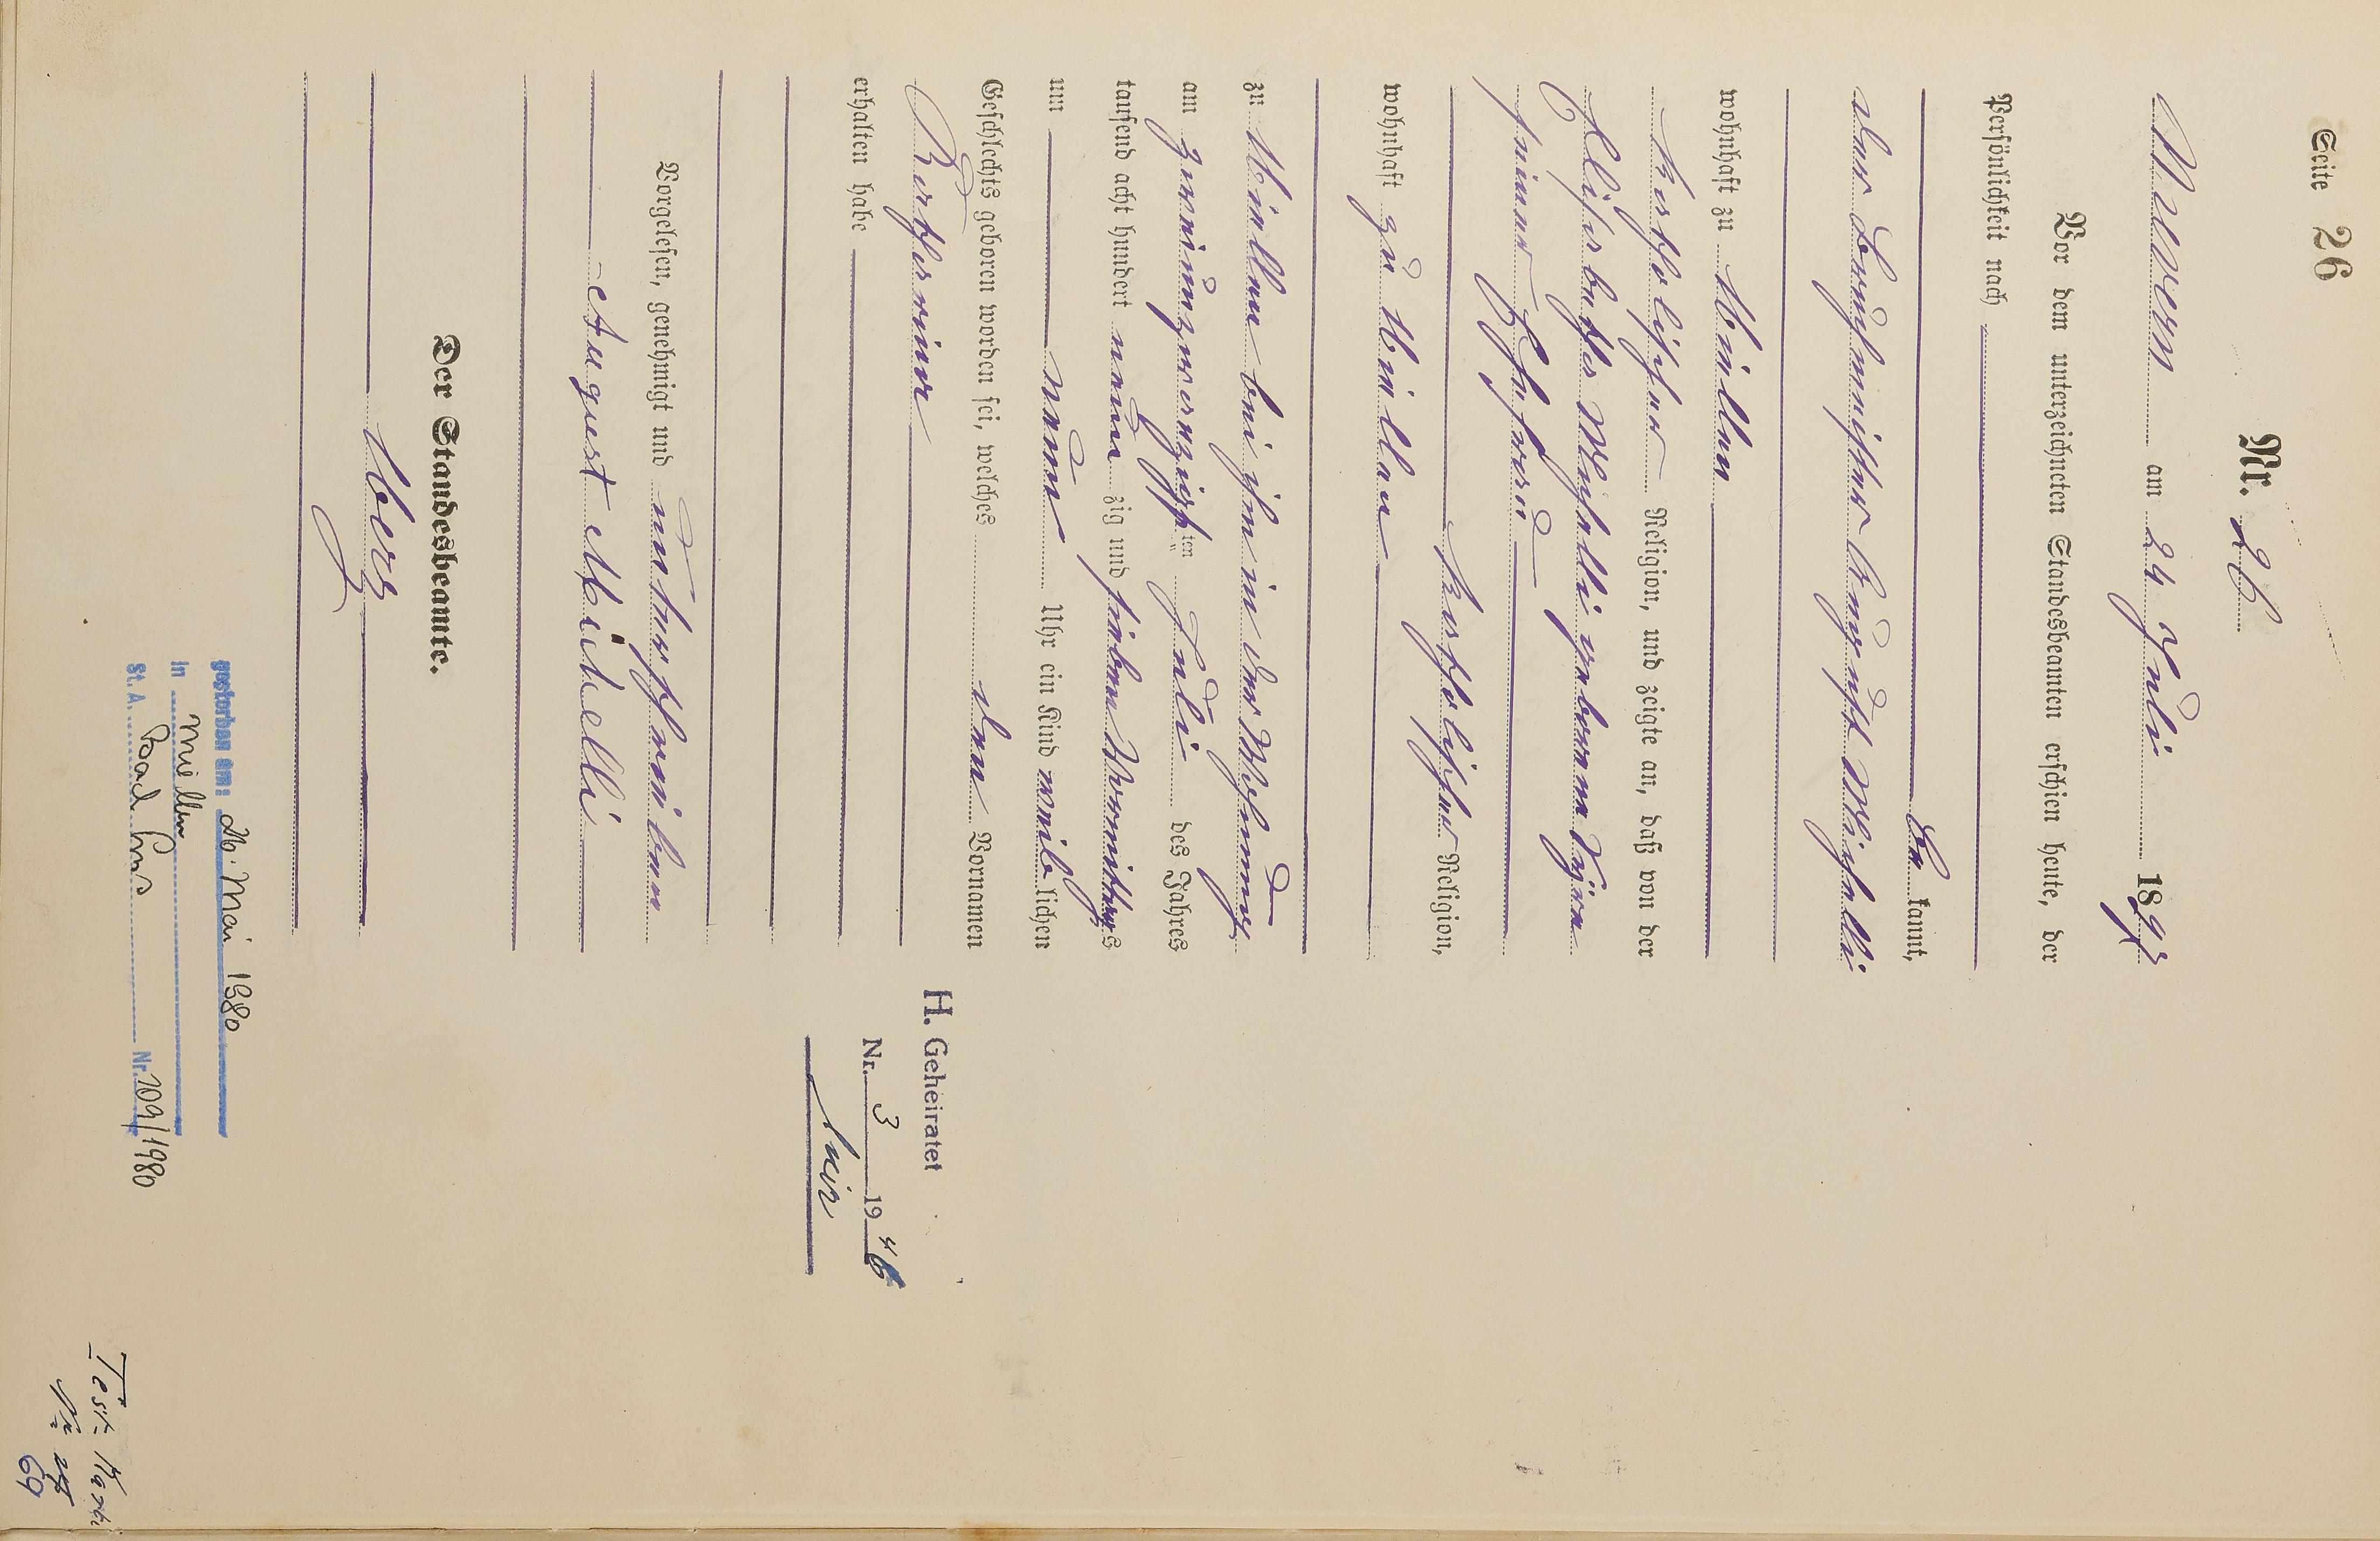 Seite 26
Nr. 26
am 24 Juli 1897
Vor dem unterzeichneten Standesbeamten erschien heute, der
Persönlichkeit nach
be kannt,
der August Michelli
wohnhaft zu Miellen
katholischer Religion, und zeigte an, daß von der
Elisabetha Michelli geborene
seiner Ehefrau
katholischer Religion,
wohnhaft zu Miellen
zu Miellen bei ihm in der Wohnung
am zweiundzwanzigsten Juli des Jahres
tausend acht hundert neun zig und sieben Vormittags
um neun Uhr ein Kind weiblichen
Geschlechts geboren worden sei, welches den Vornamen
Katharina
erhalten habe
Vorgelesen, genehmigt und unterschrieben
August Michelli
Der Standesbeamte.
H. Geheiratet
Nr. 3 1946
hier
gestorben am: 26. Mai 1980
in Miellen
St. A. Bad Ems Nr. 209/1980
Test Kartei
Nr
69